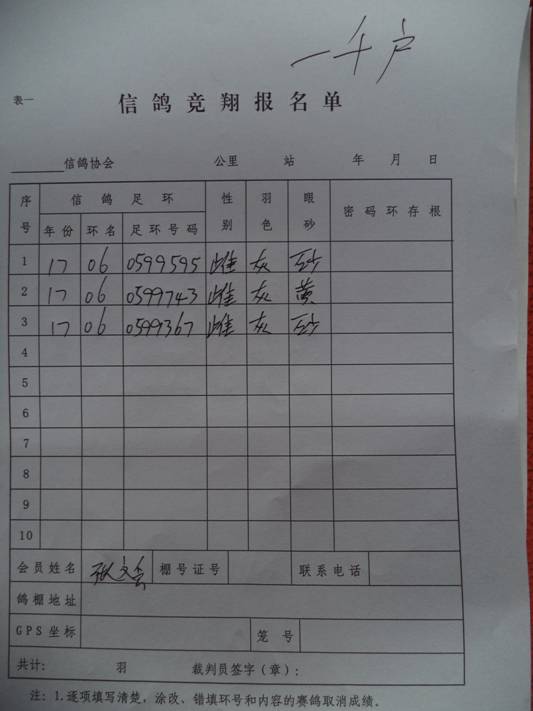 一千户
表一
信鸽竞翔报名单
信鸽协会 公里 站 年 月 日
序号 信鸽足环 性别 羽色 眼砂 密码环存根
年份 环名 足环号码
1 17 06 0599595 雌 灰 砂
2 17 06 0599743 雌 灰 黄
3 17 06 0599367 雌 灰 砂
4
5
6
7
8
9
10
会员姓名 张文会 棚号证号 联系电话
鸽棚地址
GPS坐标 笼号
共计： 羽 裁判员签字（章）：
注：1.逐项填写清楚，涂改、错填环号和内容的赛鸽取消成绩.